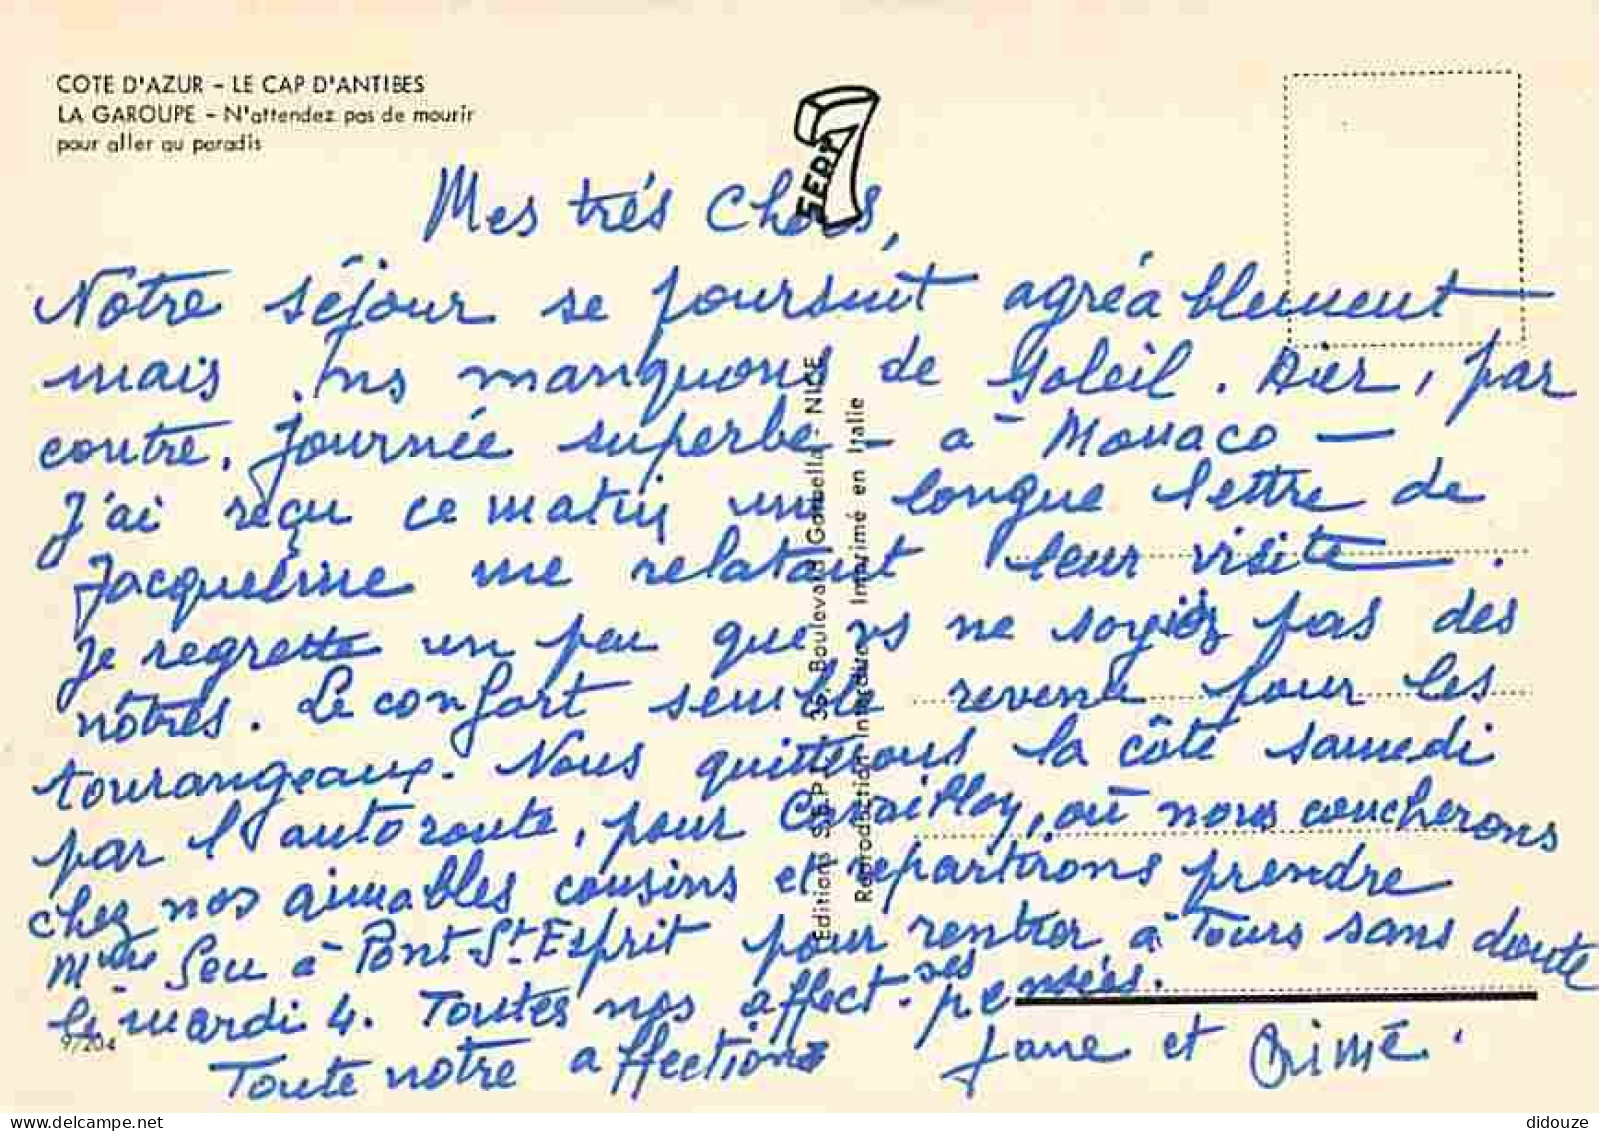 COTE D'AZUR - LE CAP D'ANTIBES
LA GAROUPE - N'attendez pas de mourir
pour aller au paradis
SEPT
Mes très Chers,
Notre séjour se poursuit agréablement
mais ns manquons de soleil. Hier, par
contre, journée superbe - à Monaco -
J'ai reçu ce matin une longue lettre de
Jacqueline me relatant leur visite.
Je regrette un peu que vs ne soyiez pas des
nôtres. Le confort semble revenu pour les
tourangeaux. Nous quitterons la côte samedi
par l'autoroute, pour Cavaillon, où nous coucherons
chez nos aimables cousins et repartirons prendre
Mme Seu à Pont-St-Esprit pour rentrer à Tours sans doute
le mardi 4. Toutes nos affect.ses pensées.
Toute notre affection
Jane et
Editions S.E.P.T. - 35, Boulevard Gambella - NICE
Reproduction Interdite Imprimé en Italie
9/204
didouze